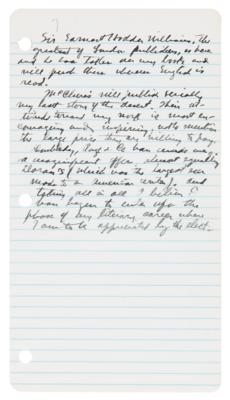 Sir Ernest Hodder Williams, the
greatest of London publishers, is here
and he has taken over my books and
will push them wherever English is
read.
McClure's will publish serially
my last story of the desert. Their at-
titude toward my work is most en-
couraging and inspiring, not to mention
the large price they are willing to pay.
Doubleday, Page & Co have made me
a magnificent offer, almost equally
Doran's (which was the largest ever
made to an American writer), and
taking all in all I believe I
have begun to enter upon the
phase of my literary career where
I am to be appreciated by the elect.